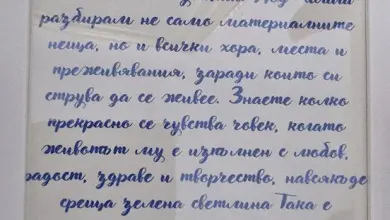 разбирам не само материалните
неща, но и всички хора, места и
преживявания, заради които си
струва да се живее. Знаете колко
прекрасно се чувства човек, когато
животът му е изпълнен с любов,
радост, здраве и творчество, навсякъде
среща зелена светлина Така е